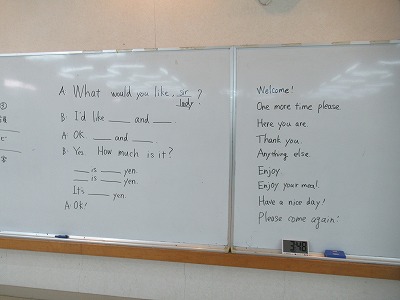 A: What would you like, sir / lady?
B: I'd like ____ and ____.
A: OK. ____ and ____.
B: Yes. How much is it?
____ is ____ yen.
____ is ____ yen.
It's ____ yen.
A: OK!
Welcome!
One more time please.
Here you are.
Thank you.
Anything else.
Enjoy.
Enjoy your meal.
Have a nice day!
Please come again!